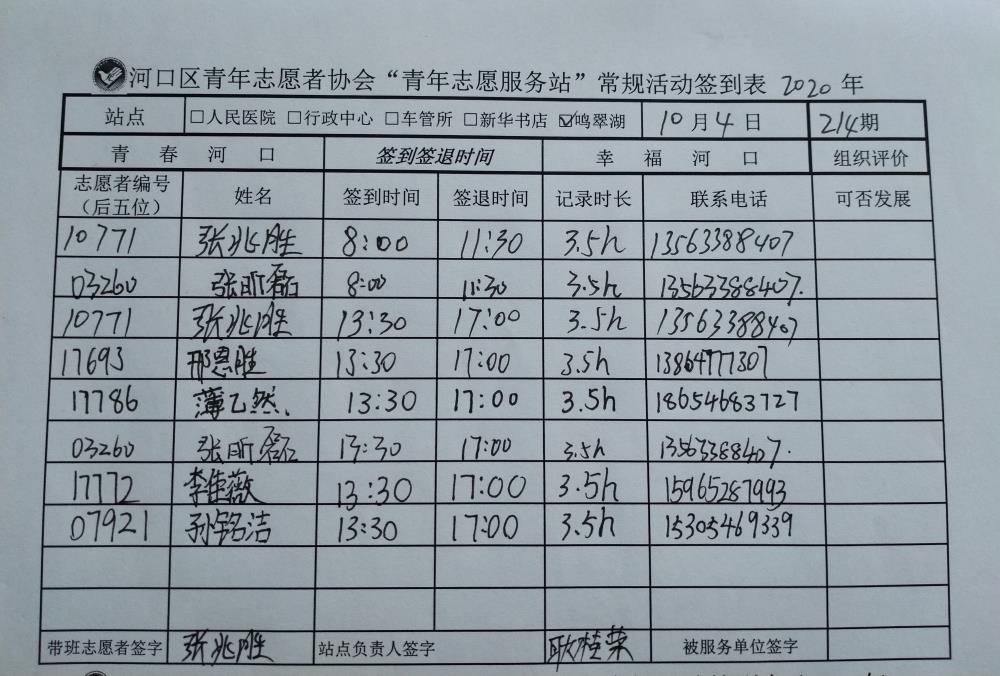 河口区青年志愿者协会“青年志愿服务站”常规活动签到表 2020 年
站点 □人民医院 □行政中心 □车管所 □新华书店 ☑鸣翠湖 10月4日 214期
青春河口 签到签退时间 幸福河口 组织评价
志愿者编号（后五位） 姓名 签到时间 签退时间 记录时长 联系电话 可否发展
10771 张兆胜 8:00 11:30 3.5h 13563388407
03260 张昕磊 8:00 11:30 3.5h 13563388407.
10771 张兆胜 13:30 17:00 3.5h 13563388407
17693 邢恩胜 13:30 17:00 3.5h 13864777307
17786 薄乙然、 13:30 17:00 3.5h 18654683727
03260 张昕磊 13:30 17:00 3.5h 13563388407.
17772 李佳薇 13:30 17:00 3.5h 15965287993
07921 孙铭洁 13:30 17:00 3.5h 15305469339
带班志愿者签字 张兆胜 站点负责人签字 耿桂荣 被服务单位签字